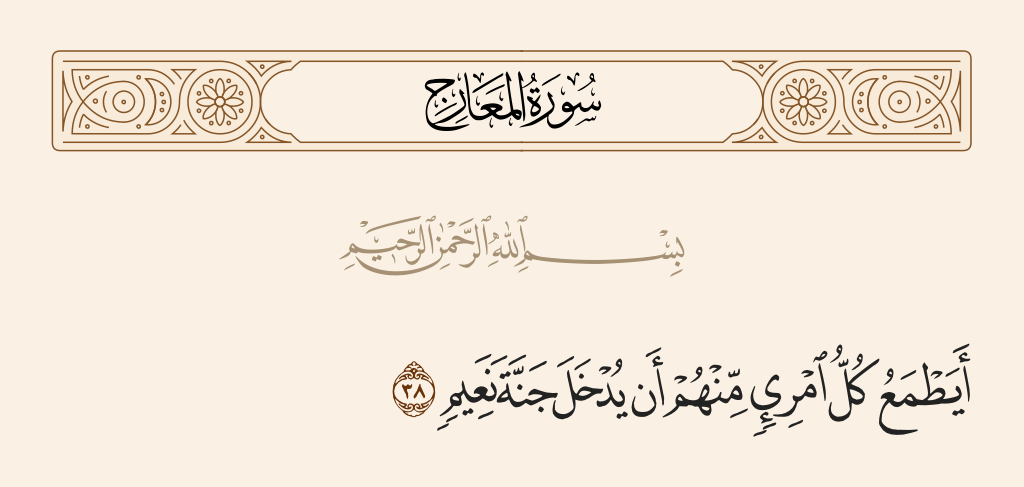 سُورَةُ المَعَارِجِ
بِسْمِ ٱللَّهِ ٱلرَّحْمَٰنِ ٱلرَّحِيمِ
أَيَطْمَعُ كُلُّ ٱمْرِئٍ مِّنْهُمْ أَن يُدْخَلَ جَنَّةَ نَعِيمٍ ٣٨